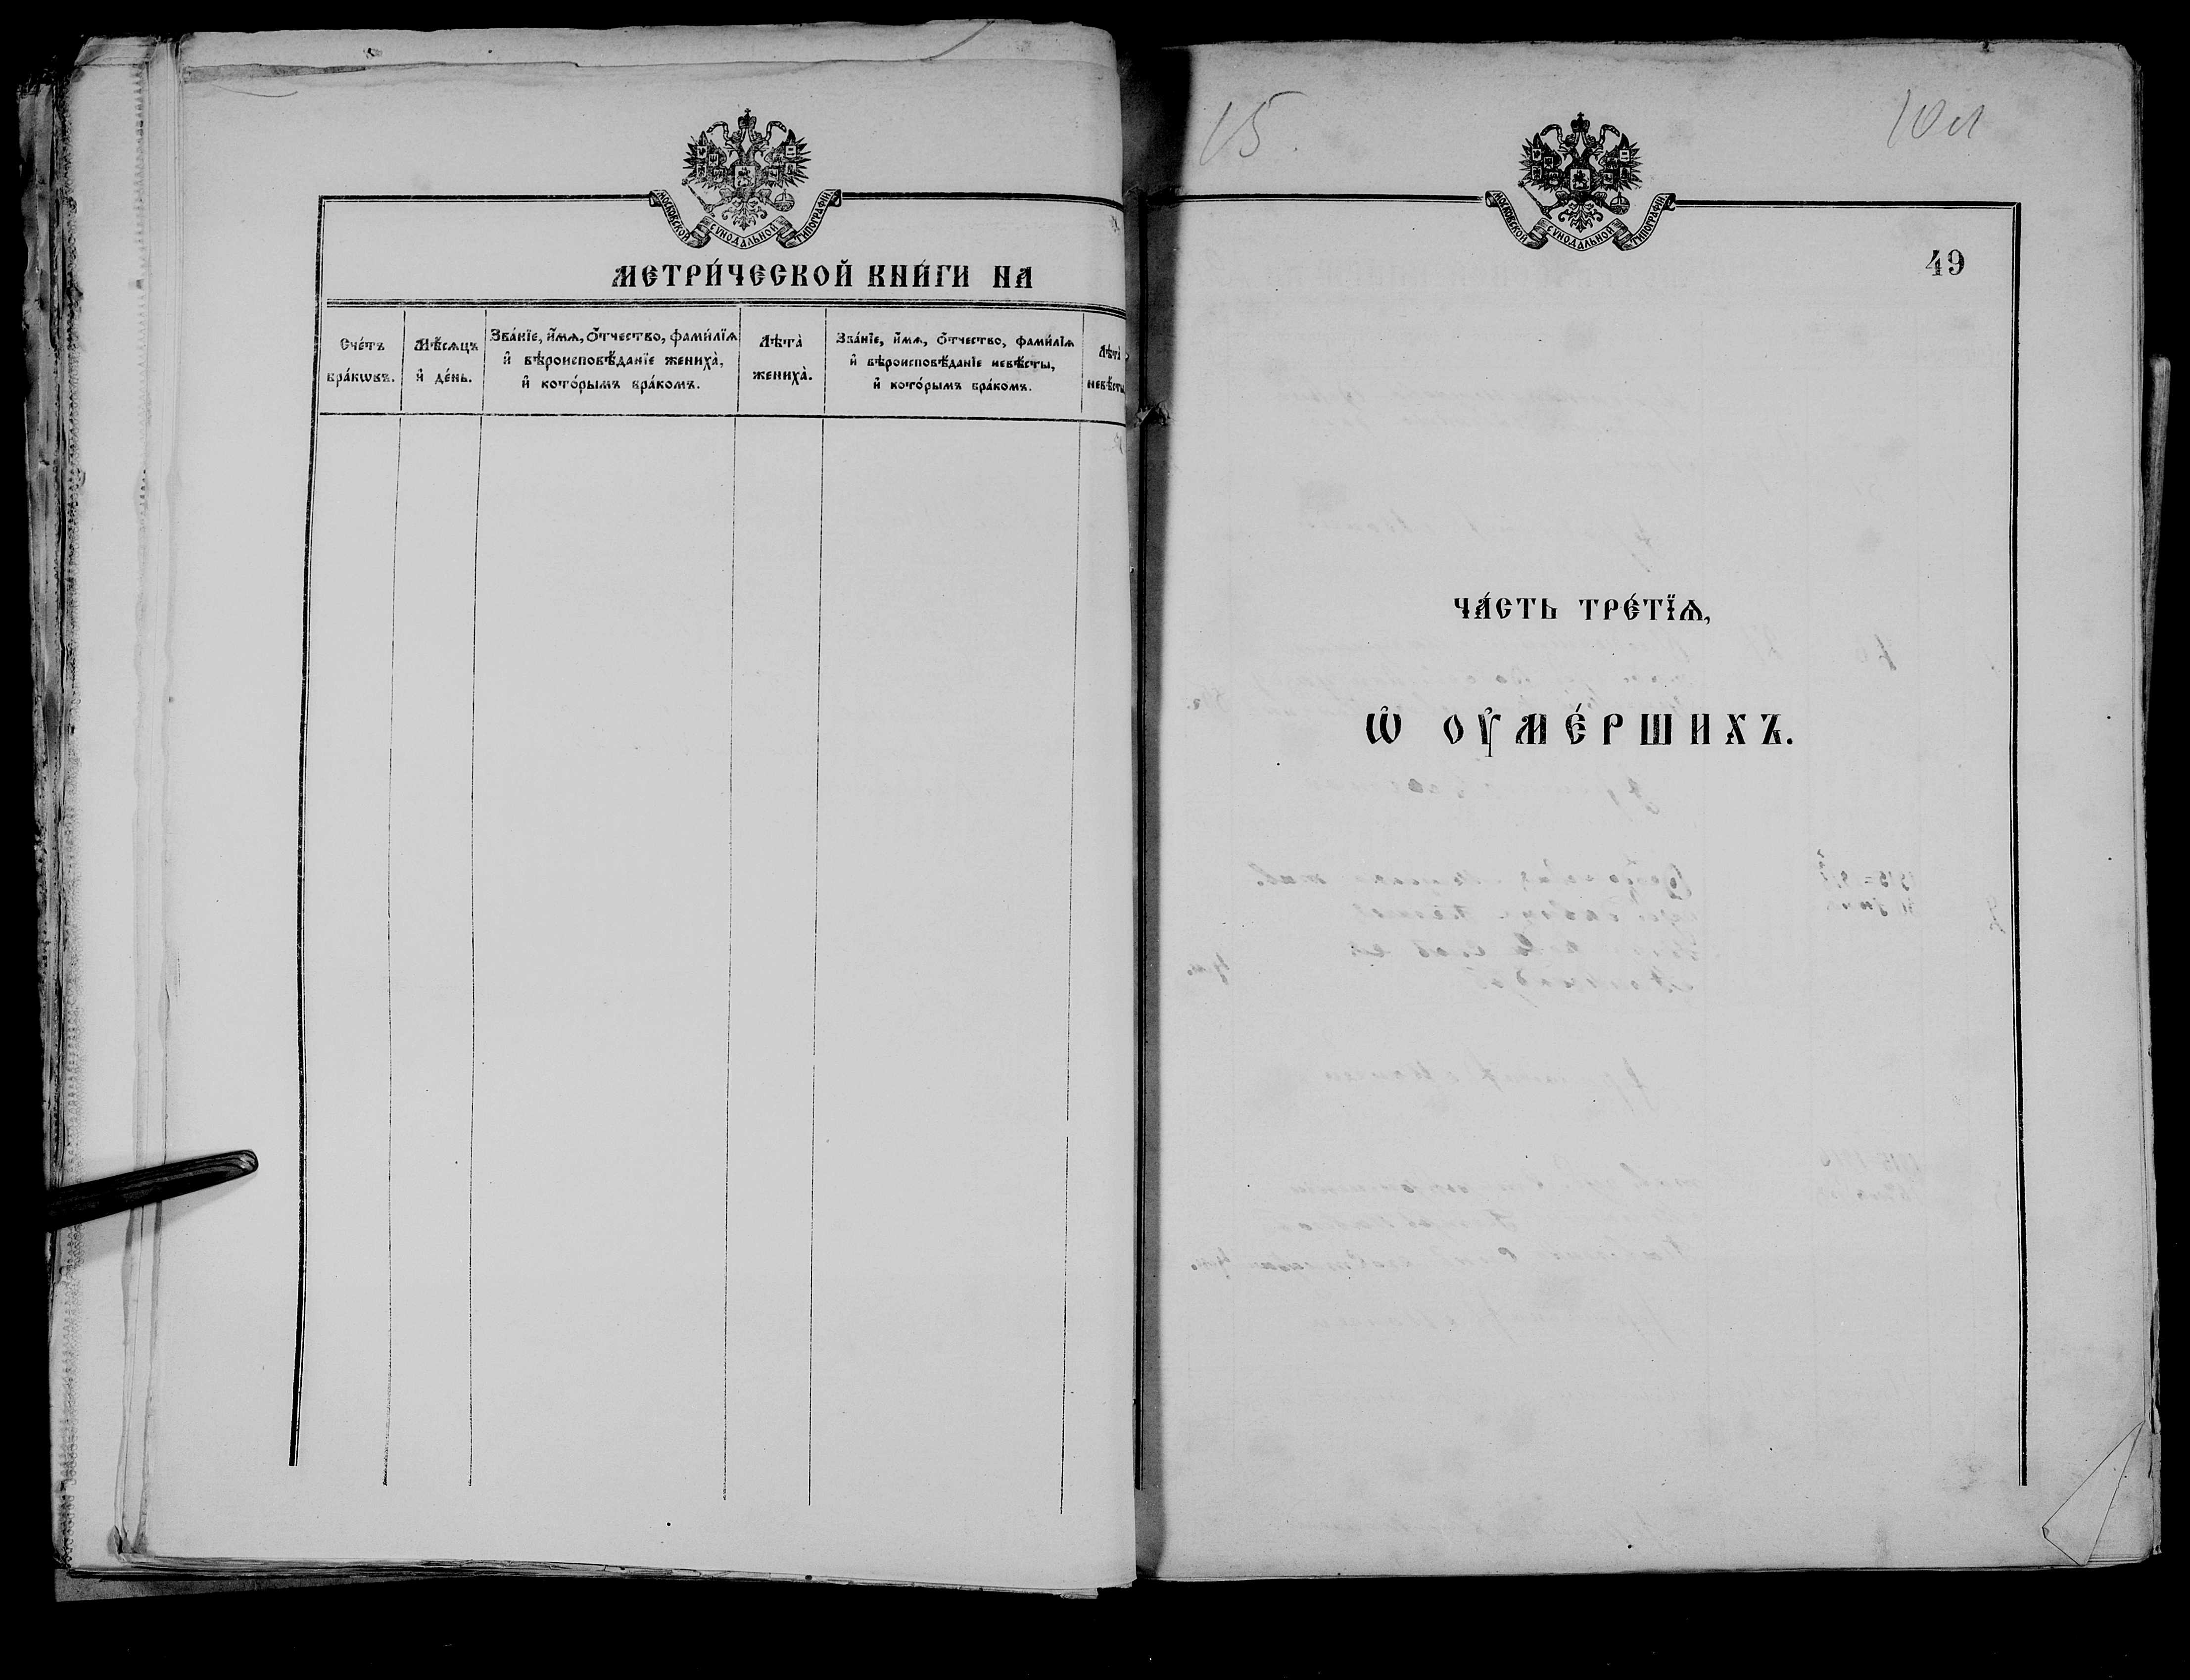 МОСКОВСКОЙ СѴНОДАЛЬНОЙ ТИПОГРАФІИ
МЕТРИ́ЧЕСКОЙ КНИ́ГИ НА
Сче́тъ
бра́кѡвъ.
Мѣ́сѧцъ
и҆ де́нь.
Зва́нїе, и҆́мѧ, ѻ҆́тчество, фами́лїѧ
и҆ вѣроисповѣ́данїе жениха̀,
и҆ кото́рымъ бра́комъ.
Лѣта̀
жениха̀.
Зва́нїе, и҆́мѧ, ѻ҆́тчество, фами́лїѧ
и҆ вѣроисповѣ́данїе невѣ́сты,
и҆ кото́рымъ бра́комъ.
Лѣта̀
невѣ́сты
15.
10 л
МОСКОВСКОЙ СѴНОДАЛЬНОЙ ТИПОГРАФІИ
49
ЧА́СТЬ ТРЕ́ТЇѦ,
Ѡ҆ ОУ҆МЕ́РШИХЪ.